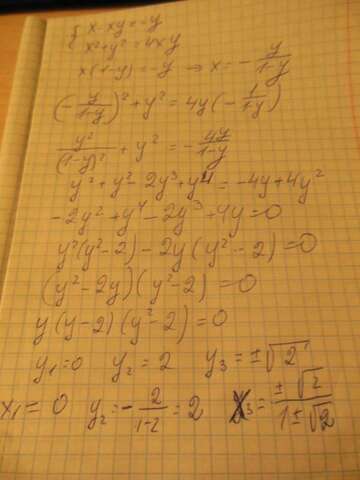 { x - xy = -y
x² + y² = 4xy
x(1-y) = -y → x = - y/(1-y)
(- y/(1-y))² + y² = 4y(- 1/(1-y))
y²/(1-y)² + y² = - 4y/(1-y)
y² + y² - 2y³ + y⁴ = -4y + 4y²
-2y² + y⁴ - 2y³ + 4y = 0
y²(y² - 2) - 2y(y² - 2) = 0
(y² - 2y)(y² - 2) = 0
y(y - 2)(y² - 2) = 0
y₁ = 0 y₂ = 2 y₃ = ±√2
x₁ = 0 y₂ = - 2/(1-2) = 2 x₃ = ±√2/(1±√2)